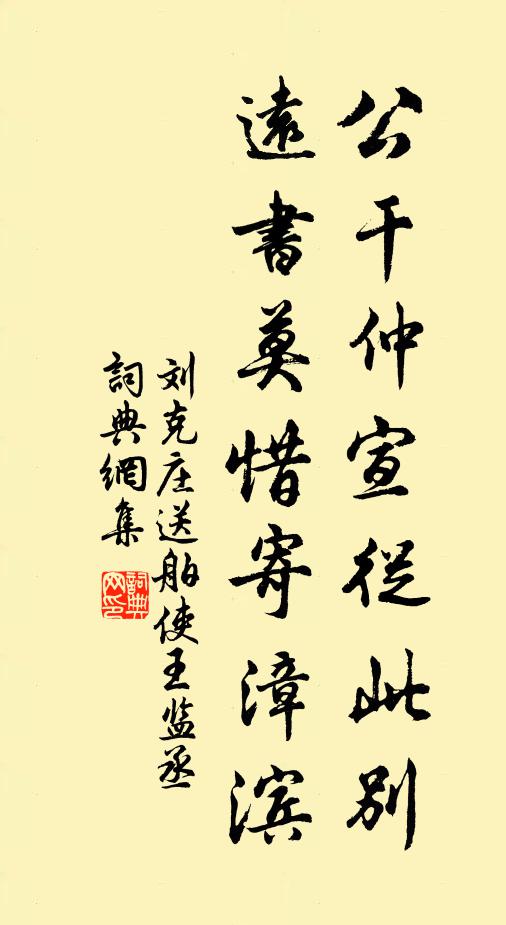 公干仲宣從此别
遠書莫惜寄漳滨
刘克庄送舶使王监丞
詞典網集
詞典网印